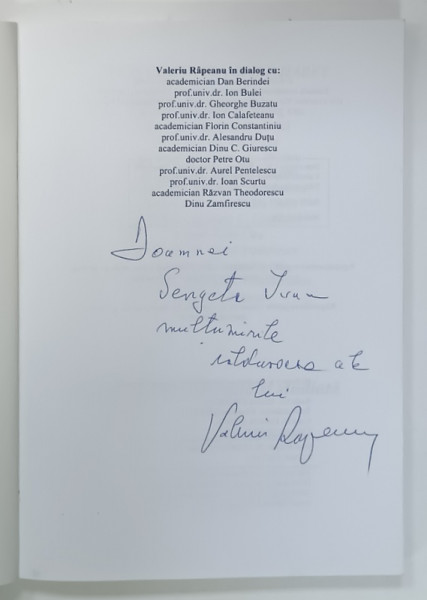 Valeriu Râpeanu în dialog cu:
academician Dan Berindei
prof.univ.dr. Ion Bulei
prof.univ.dr. Gheorghe Buzatu
prof.univ.dr. Ion Calafeteanu
academician Florin Constantiniu
prof.univ.dr. Alesandru Duțu
academician Dinu C. Giurescu
doctor Petre Otu
prof.univ.dr. Aurel Pentelescu
prof.univ.dr. Ioan Scurtu
academician Răzvan Theodorescu
Dinu Zamfirescu
Doamnei
multumirile
ale
lui
Valeriu Rapeanu